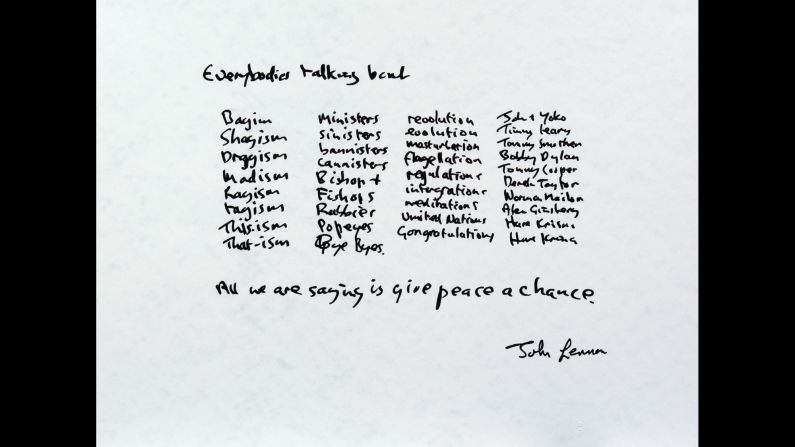 Everybodies talking bout
Bagism
Shagism
Draggism
Madism
Ragism
tagism
This.ism
That-ism
Ministers
sinisters
bannisters
cannisters
Bishop +
Fishops
Popeyes
Bye Byes.
revolution
evolution
masturbation
flagellation
regulations
intergrations
meditations
United Nations
Congratulations
John + Yoko
Timmy Leary
Tommy Smothers
Bobby Dylan
Tommy Cooper
Derek Taylor
Norman Mailer
Alen Ginsberg
Hare Krisna
Hare
All we are saying is give peace a chance.
John Lennon